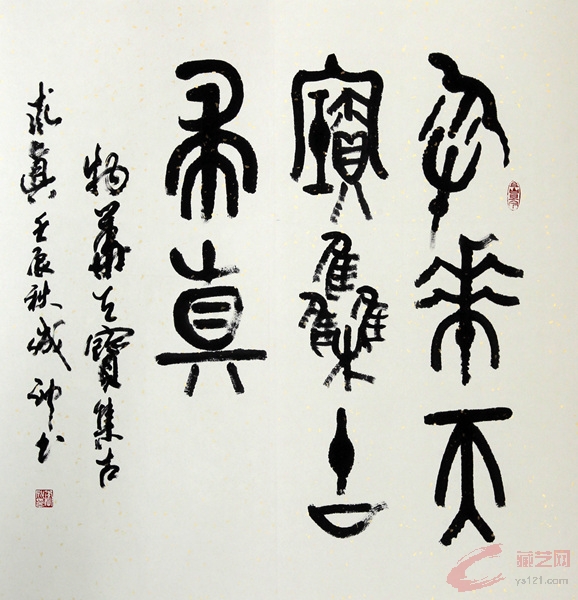 物華天
寶集古
求真
物華天寶集古
求真壬辰秋成神书
藏艺网
ys121.com